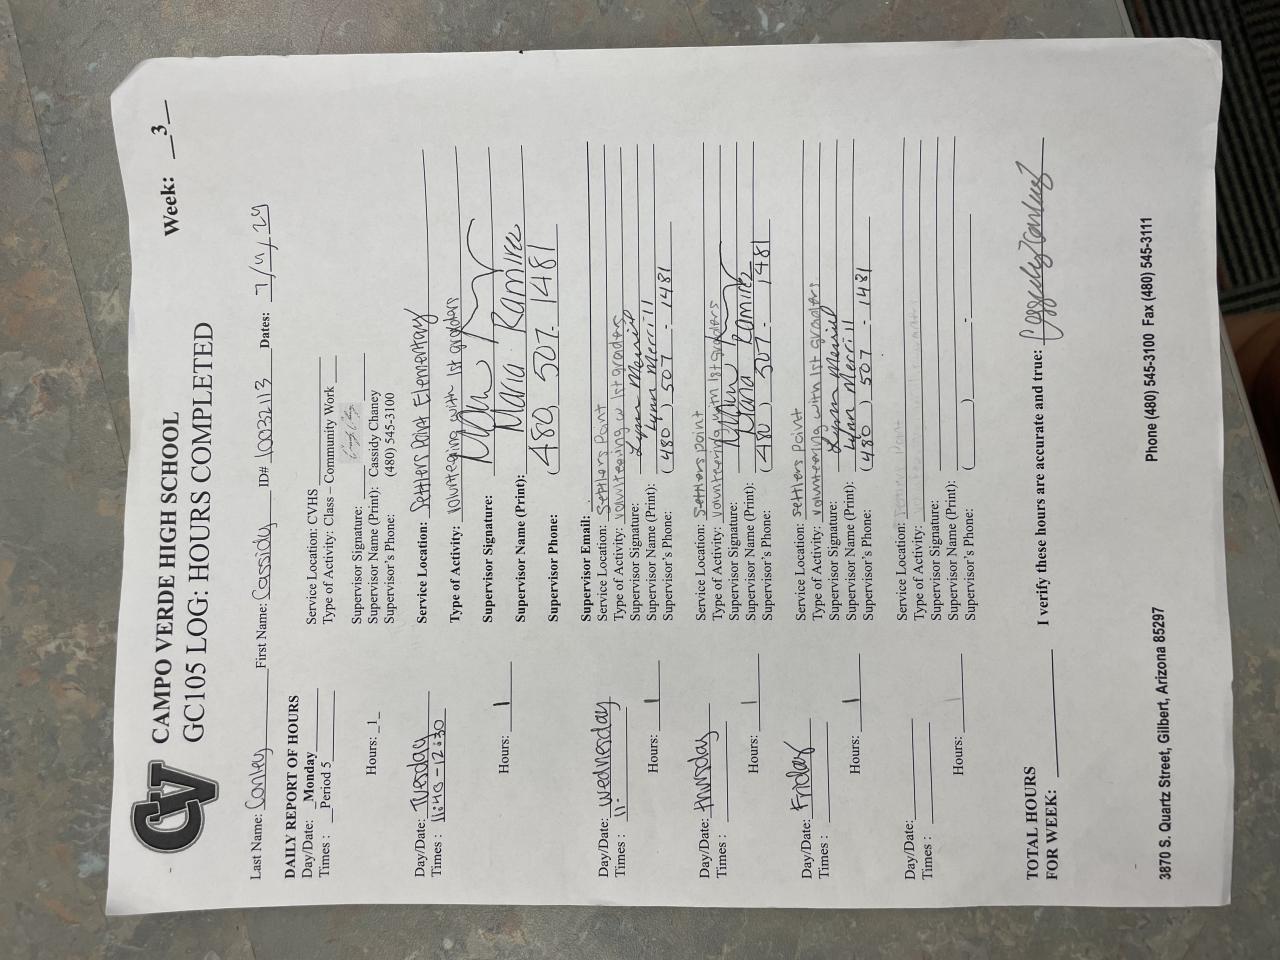 CV
CAMPO VERDE HIGH SCHOOL Week: 3
GC105 LOG: HOURS COMPLETED
Last Name: Conley First Name: Cassidy ID# 10032113 Dates: 7/4/24
DAILY REPORT OF HOURS
Day/Date: Monday Service Location: CVHS
Times : Period 5 Type of Activity: Class – Community Work
Supervisor Signature:
Hours: 1 Supervisor Name (Print): Cassidy Chaney
Supervisor's Phone: (480) 545-3100
Day/Date: Tuesday Service Location: Settlers Point Elementary
Times : 11:45-12:30 Type of Activity: Volunteering with 1st graders
Supervisor Signature:
Hours: 1 Supervisor Name (Print): Maria Ramirez
Supervisor Phone: (480) 507-1481
Supervisor Email:
Day/Date: Wednesday Service Location: Settlers Point
Times : 11: Type of Activity: volunteering w/ 1st graders
Supervisor Signature: Lynn Merrill
Hours: 1 Supervisor Name (Print): Lynn Merrill
Supervisor's Phone: (480) 507 - 1481
Day/Date: Thursday Service Location: Settlers point
Times : Type of Activity: volunteering with 1st graders
Supervisor Signature:
Hours: 1 Supervisor Name (Print): Maria Ramirez
Supervisor's Phone: (480) 507 - 1481
Day/Date: Friday Service Location: settlers point
Times : Type of Activity: volunteering with 1st graders
Supervisor Signature: Lynn Merrill
Hours: 1 Supervisor Name (Print): Lynn Merrill
Supervisor's Phone: (480) 507 - 1481
Day/Date: Service Location:
Times : Type of Activity:
Supervisor Signature:
Hours: 1 Supervisor Name (Print):
Supervisor's Phone: ( ) -
TOTAL HOURS
FOR WEEK: I verify these hours are accurate and true:
3870 S. Quartz Street, Gilbert, Arizona 85297 Phone (480) 545-3100 Fax (480) 545-3111